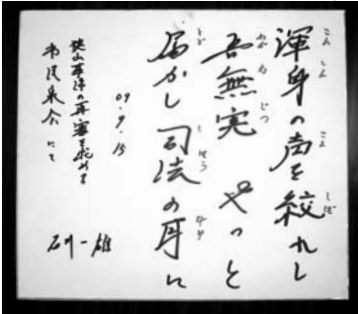 渾身の声を絞れし
吾無実 やっと
届かし 司法の耳に
09.9.15
狭山事件の再審を求める
市民集会にて
石川一雄